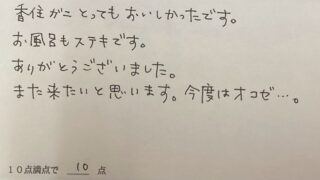 香住ガニとってもおいしかったです。
お風呂もステキです。
ありがとうございました。
また来たいと思います。今度はオコゼ…。
10点満点で 10 点